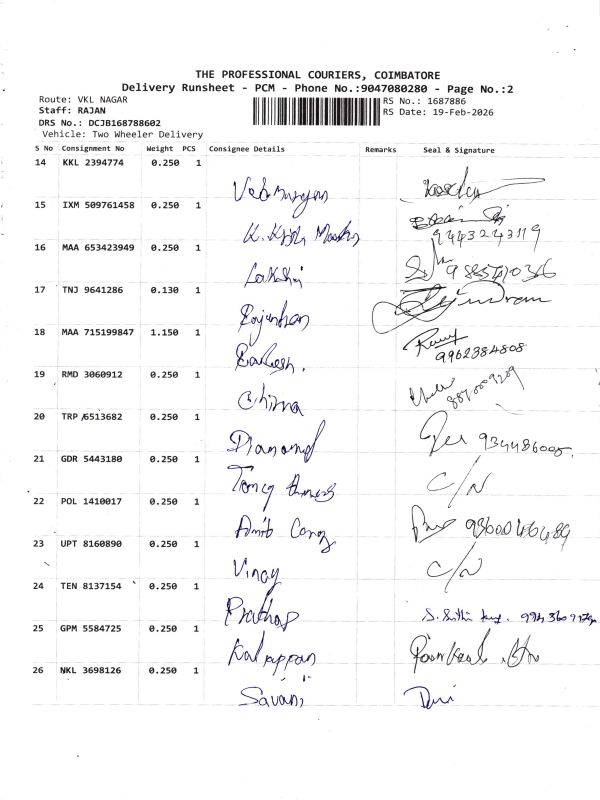 THE PROFESSIONAL COURIERS, COIMBATORE
Delivery Runsheet - PCM - Phone No.:9047080280 - Page No.:2
Route: VKL NAGAR
Staff: RAJAN
DRS No.: DCJB168788602
Vehicle: Two Wheeler Delivery
RS No.: 1687886
RS Date: 19-Feb-2026
S No Consignment No Weight PCS Consignee Details Remarks Seal & Signature
14 KKL 2394774 0.250 1
15 IXM 509761458 0.250 1
9443243119
16 MAA 653423949 0.250 1
Lakshmi
17 TNJ 9641286 0.130 1
18 MAA 715199847 1.150 1
9962384808
19 RMD 3060912 0.250 1
Chinna
20 TRP 6513682 0.250 1
Diamond
21 GDR 5443180 0.250 1
C/N
22 POL 1410017 0.250 1
23 UPT 8160890 0.250 1
Vinay C/N
24 TEN 8137154 0.250 1
Prathap
25 GPM 5584725 0.250 1
Kalpappan
26 NKL 3698126 0.250 1
Savani